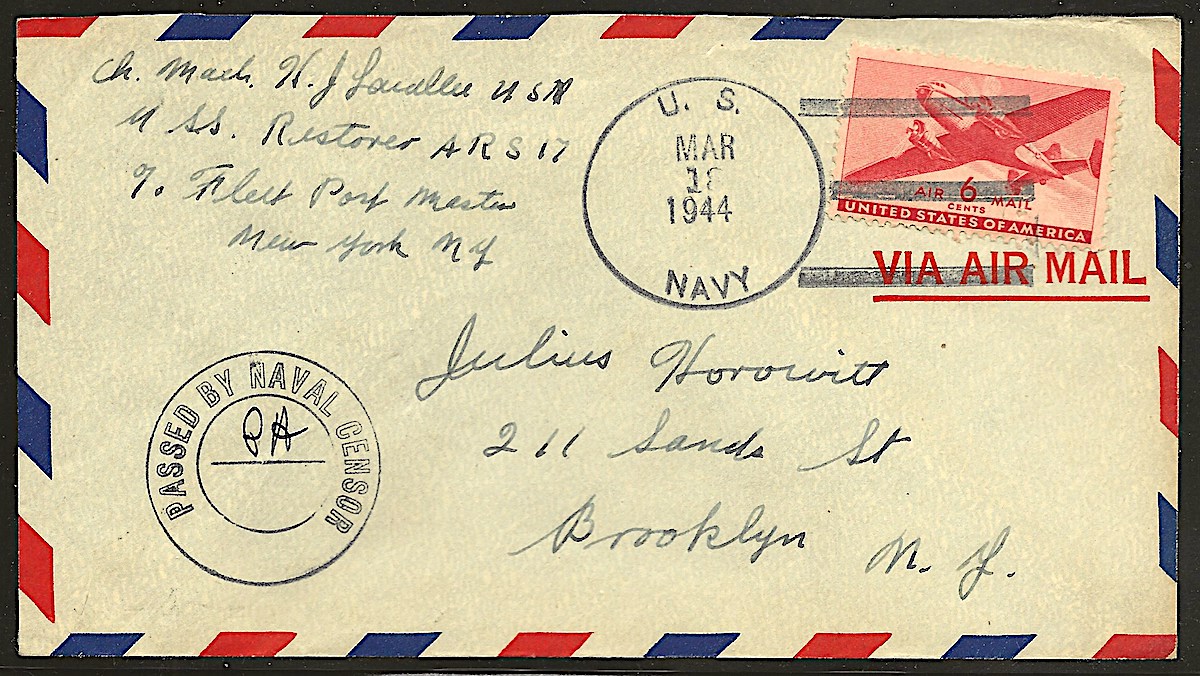 Ch. Mach. W. J Lavallee USN
U SS. Restorer ARS 17
% Fleet Post Master
New York NY
U. S.
MAR
1944
NAVY
AIR 6 MAIL
CENTS
UNITED STATES OF AMERICA
VIA AIR MAIL
PASSED BY NAVAL CENSOR
PA
Julius Horowitt
211 Sands St
Brooklyn N. Y.